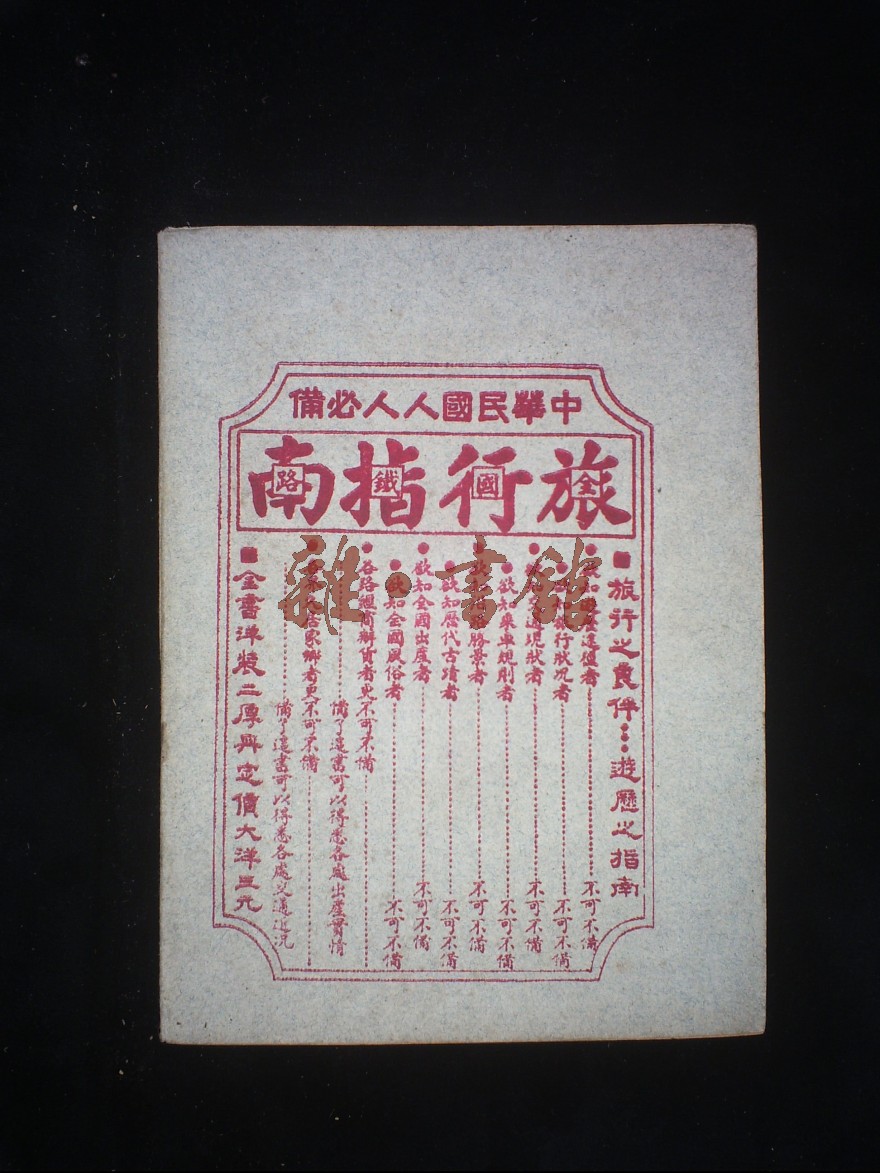 中華民國人人必備
旅行指南
全國鐵路
■旅行之良伴⋯遊歷之指南
●欲知者……不可不備
●行狀况者……不可不備
●交通現狀者……不可不備
●欲知乘車規則者……不可不備
●勝景者……不可不備
●欲知歷代古蹟者……不可不備
●欲知全國出產者……不可不備
●欲知全國風俗者……不可不備
●各路經商辦貨者更不可不備……
……備了這書可以得悉各處出產實情
●居家鄉者更不可不備……
……備了這書可以得悉各處交通近況
■全書洋裝二厚冊定價大洋三元
雜·書館